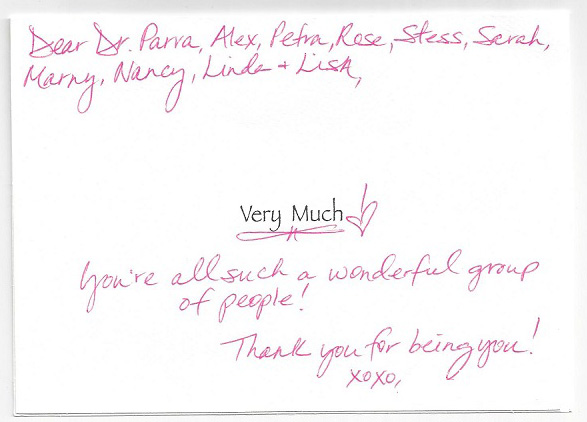 Dear Dr. Parra, Alex, Petra, Rose, Stess, Sarah,
Marny, Nancy, Linda + Lisa,
Very Much
You're all such a wonderful group
of people!
Thank you for being you!
xoxo,